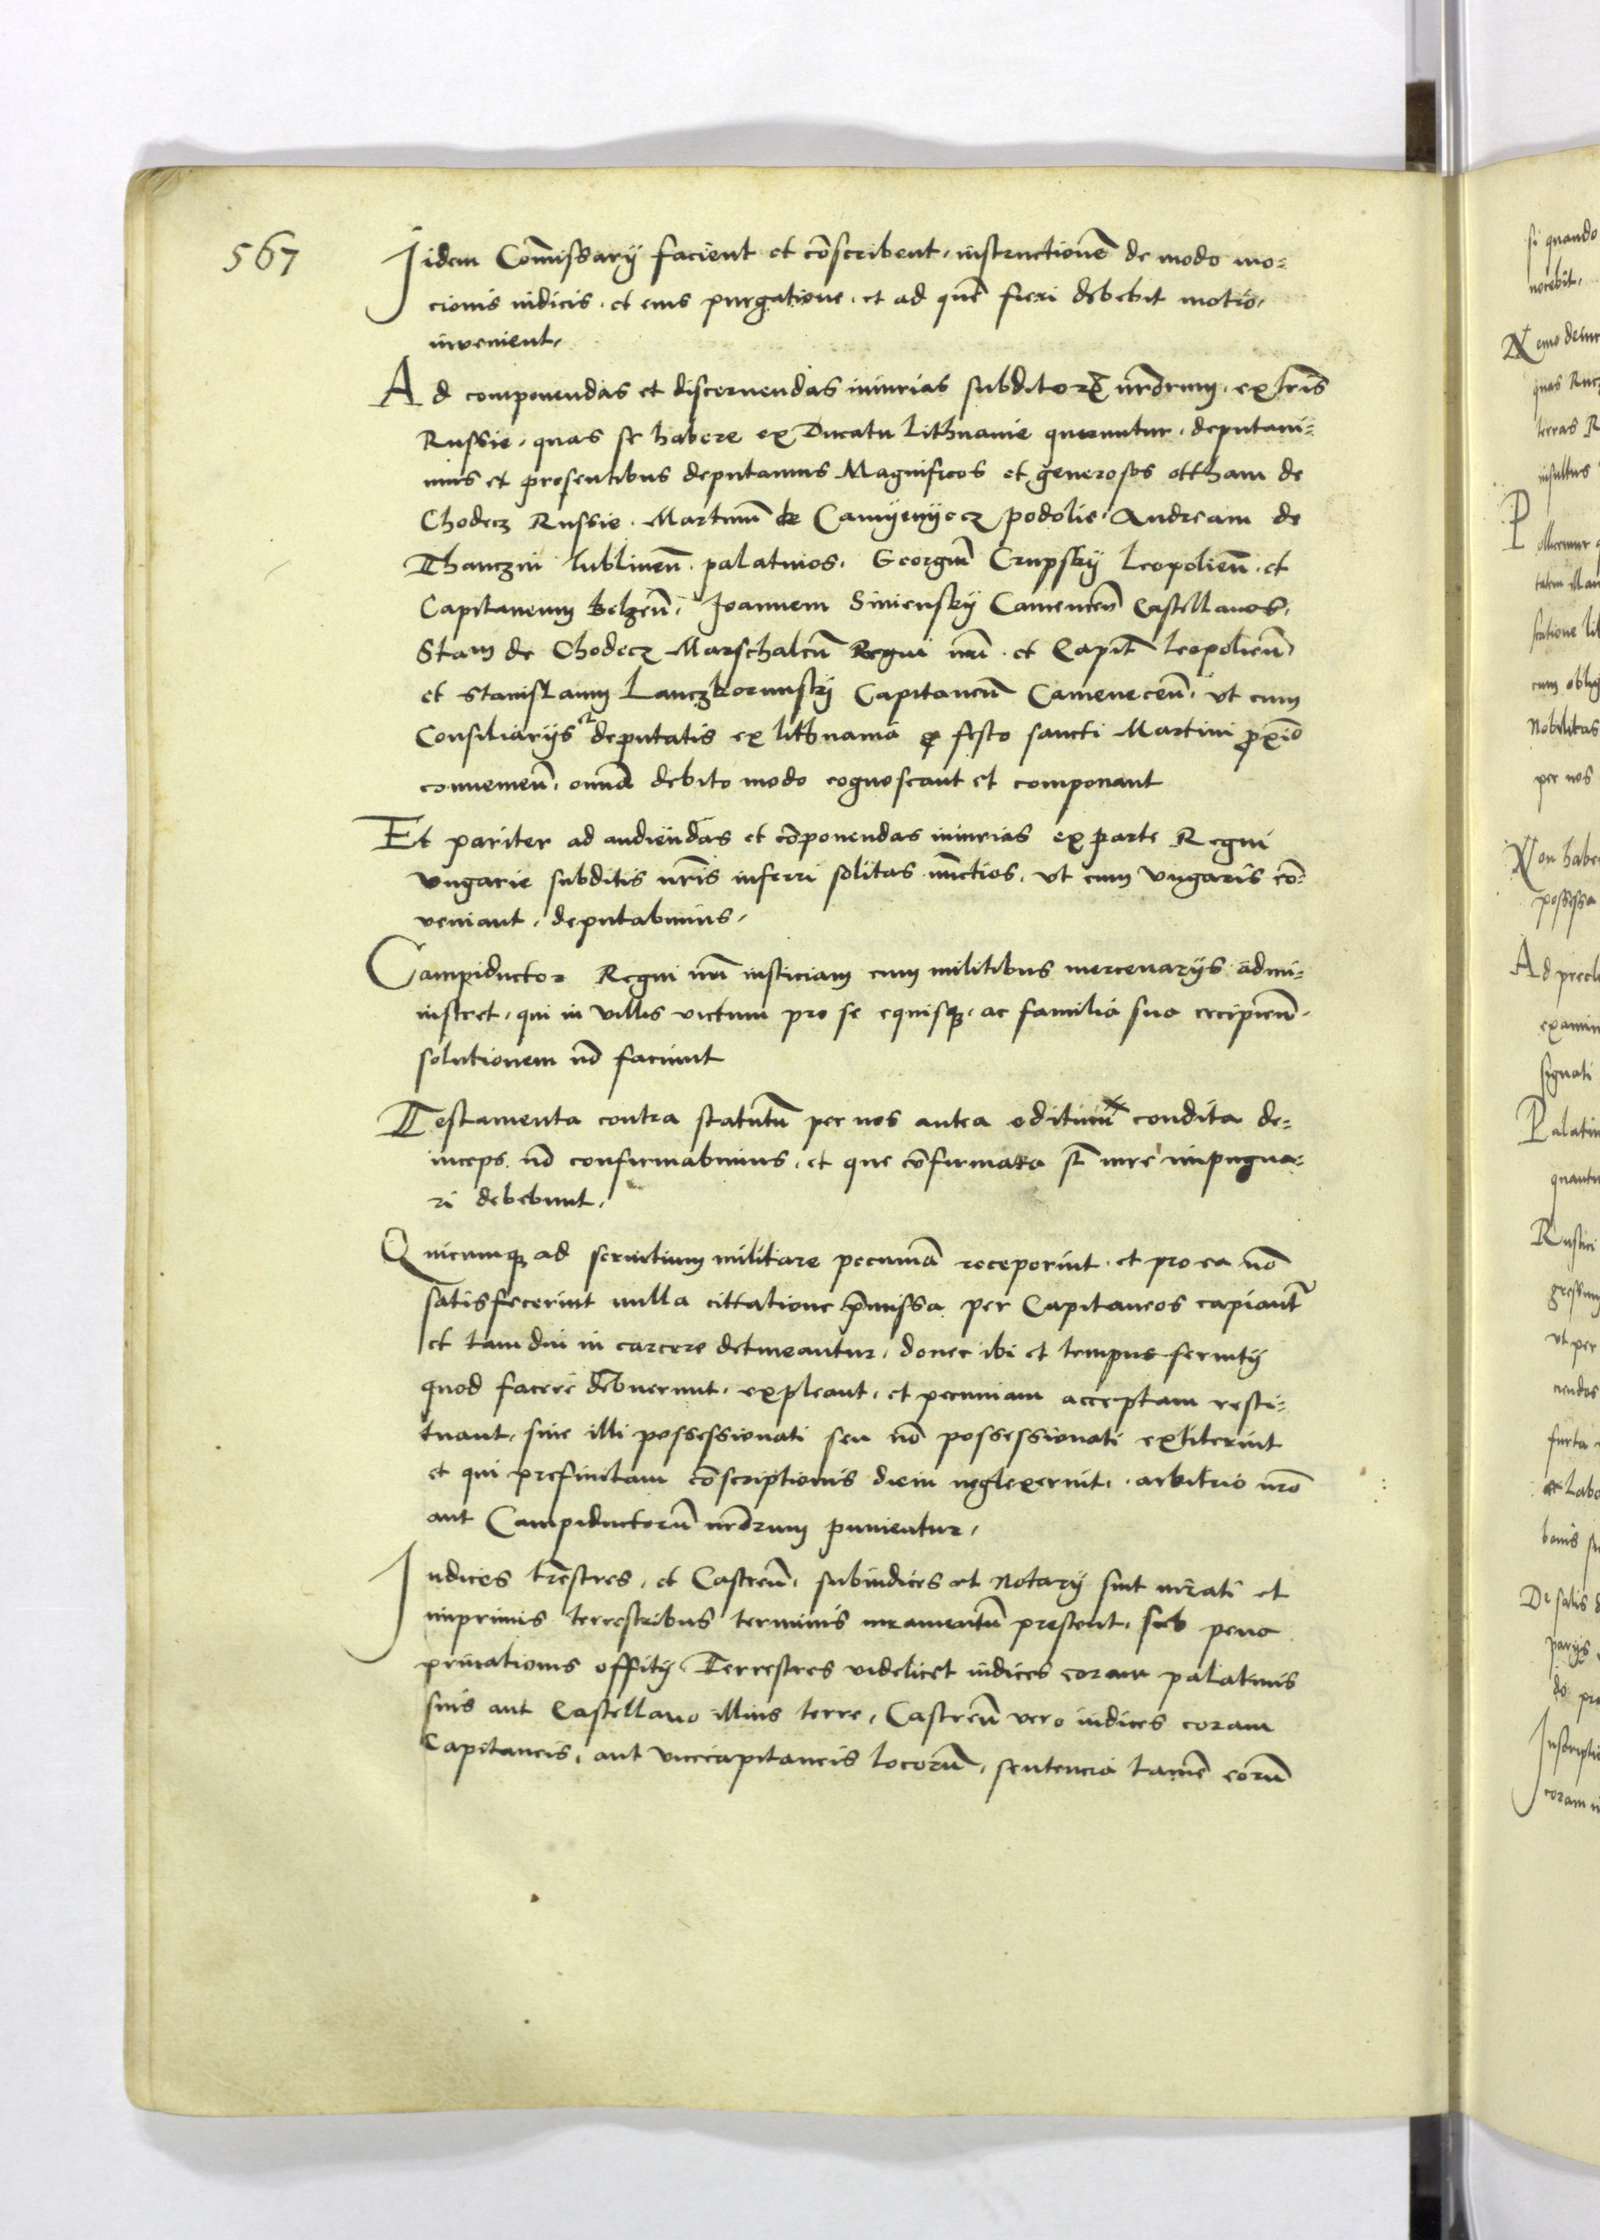 567
Iidem Com̄issarÿ facient et cōscribent, instructionē de modo mo-
cionis iudicis, et eius purgatione, et ad quē fieri debebit motio,
invenient,
Ad componendas et discernendas iniurias subditorū nr̄orum, ex tr̄is
Russie, quas se habere ex Ducatu Lithuanie queruntur, deputaui-
mus et presentibus deputamus Magnificos et generosos ottham de
Chodecz Russie, Martinū de Camÿenÿecz podolie, Andream de
Thanczin lublineñ. palatinos, Georgiū Crupskÿ Leopolieñ. et
Capitaneum belzeñ. Joannem Sinienskÿ Cameneceñ Castellanos,
Stam de Chodecz Marschalcū Regni nr̄i et Capit̄ leopolieñ
et Stanislaum Lanczkorunskÿ Capitaneū Cameneceñ. ut cum
Consiliarÿs deputatis ex lithuania p̱ festo sancti Martini p̱xīo
conuenieñ. omīa debito modo cognoscant et componant
Et pariter ad audiendas et cōponendas iniurias ex parte Regni
Vngarie subditis nr̄is inferri solitas nūctios, ut cum Vngaris cō-
veniant, deputabimus,
Campiductor Regni nr̄i iusticiam cum militibus mercenarÿs admi-
nistret, qui in villis victum pro se equisq₃ ac familia sua recipieñ.
solutionem nō faciunt
Testamenta contra statutū per nos antea editum condita de-
inceps nō confirmabimus, et que cōfirmata st̄ iure impugna-
ri debebunt,
Quicumq₃ ad seruitium militare pecuniā receperint, et pro ea nō
satisfecerint nulla cittatione p̄missa per Capitaneos capiant̄
et tam diu in carcere detineantur, donec ibi et tempus seruitÿ
quod facere debuerunt, expleant, et pecuniam acceptam resti-
tuant, siue illi possessionati seu nō possessionati extiterint
et qui prefinitam cōscriptionis diem neglexerint, arbitrio nr̄o
aut Campiductorū nr̄orum punientur,
Iudices tr̄estres, et Castreñ. subiudices et Notarÿ sint iurati et
imprimis terrestribus terminis iuramentū prestent, sub pena
priuationis offitÿ, Terrestres videlicet iudices coram palatinis
suis aut Castellano illius terre, Castreñ vero iudices coram
Capitaneis, aut vicecapitaneis locorū, sentencia tamē eorū
si quando
nocebit,
quas Rucz
terras R
insultus
P
cum oblig
Nobilitas
per nos
Non habe
possessa
Ad precl
examin
signati
Palatin
quantu
Rustici
gressum
ut per
nendos
furta
bonis
De satis
do pro
Inscriptio
coram